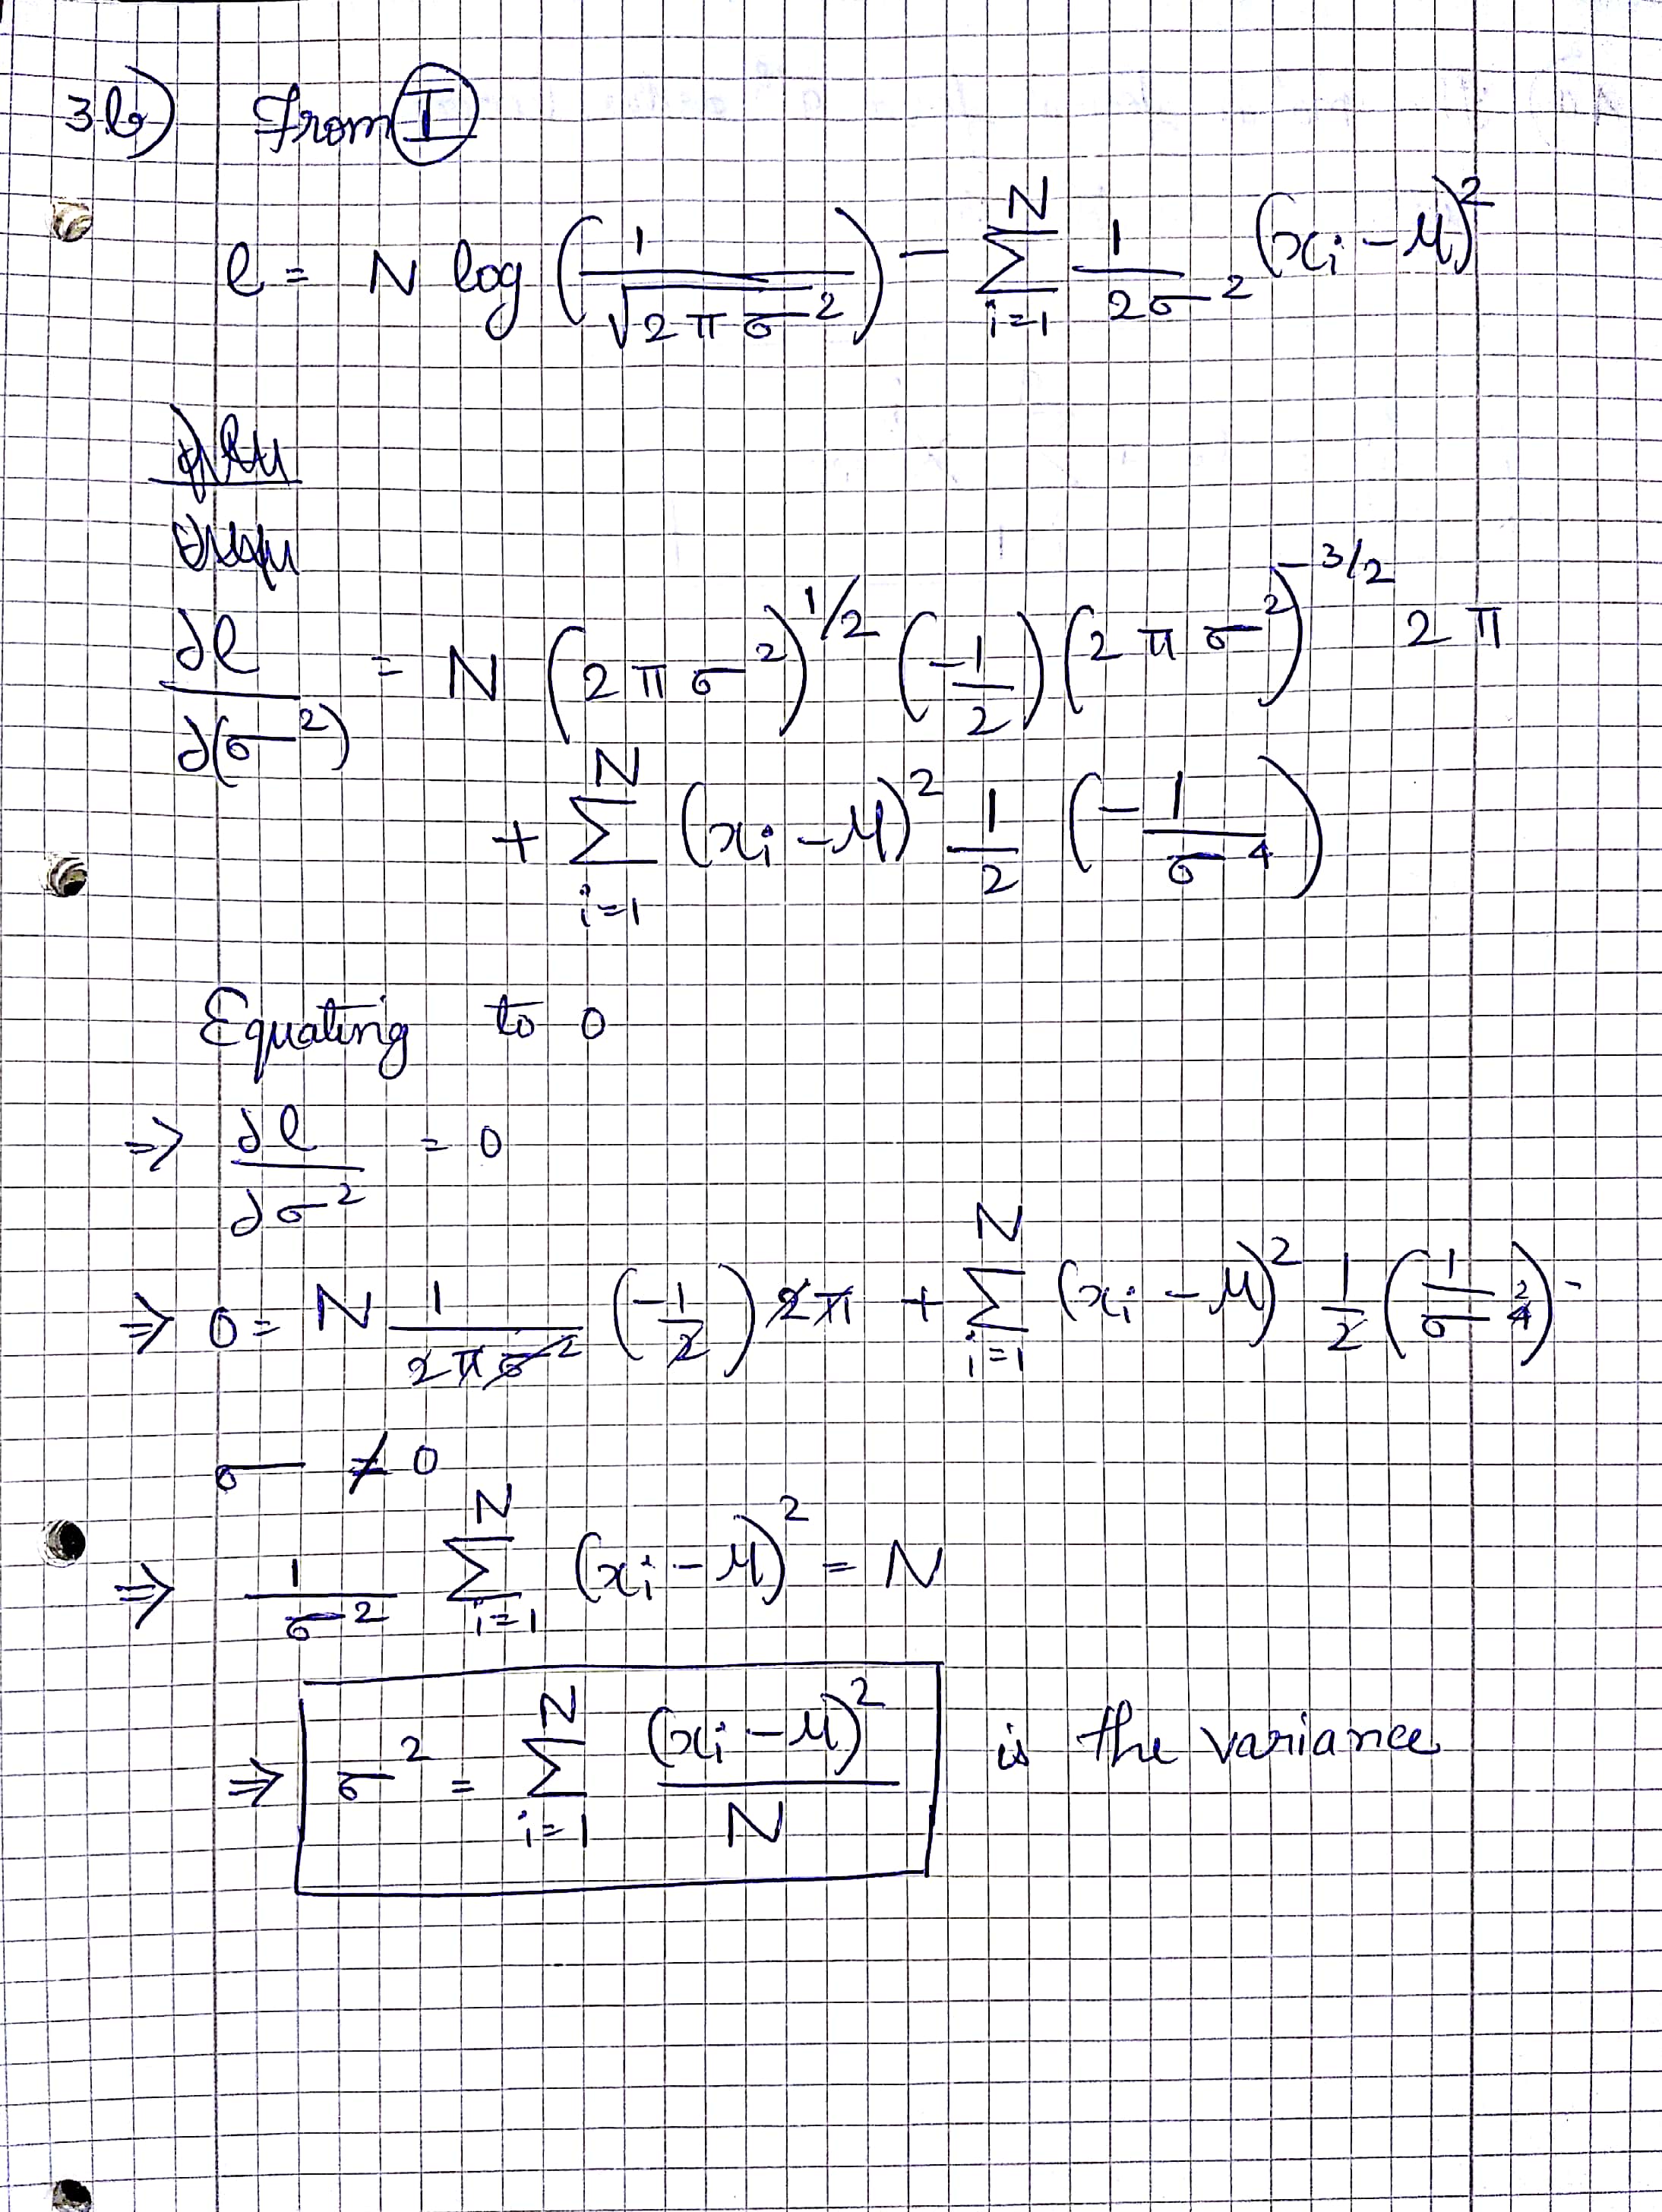 3b) From (I)
l = N log (1/√(2πσ²)) - Σ_{i=1}^{N} 1/(2σ²) (xᵢ - μ)²
∂l/∂(σ²) = N (2πσ²)^{1/2} (-1/2) (2πσ²)^{-3/2} 2π
+ Σ_{i=1}^{N} (xᵢ - μ)² 1/2 (-1/σ⁴)
Equating to 0
⇒ ∂l/∂σ² = 0
⇒ 0 = N 1/(2πσ²) (-1/2) 2π + Σ_{i=1}^{N} (xᵢ - μ)² 1/2 (1/σ²) -
σ ≠ 0
⇒ 1/σ² Σ_{i=1}^{N} (xᵢ - μ)² = N
⇒ σ² = Σ_{i=1}^{N} (xᵢ - μ)²/N is the variance